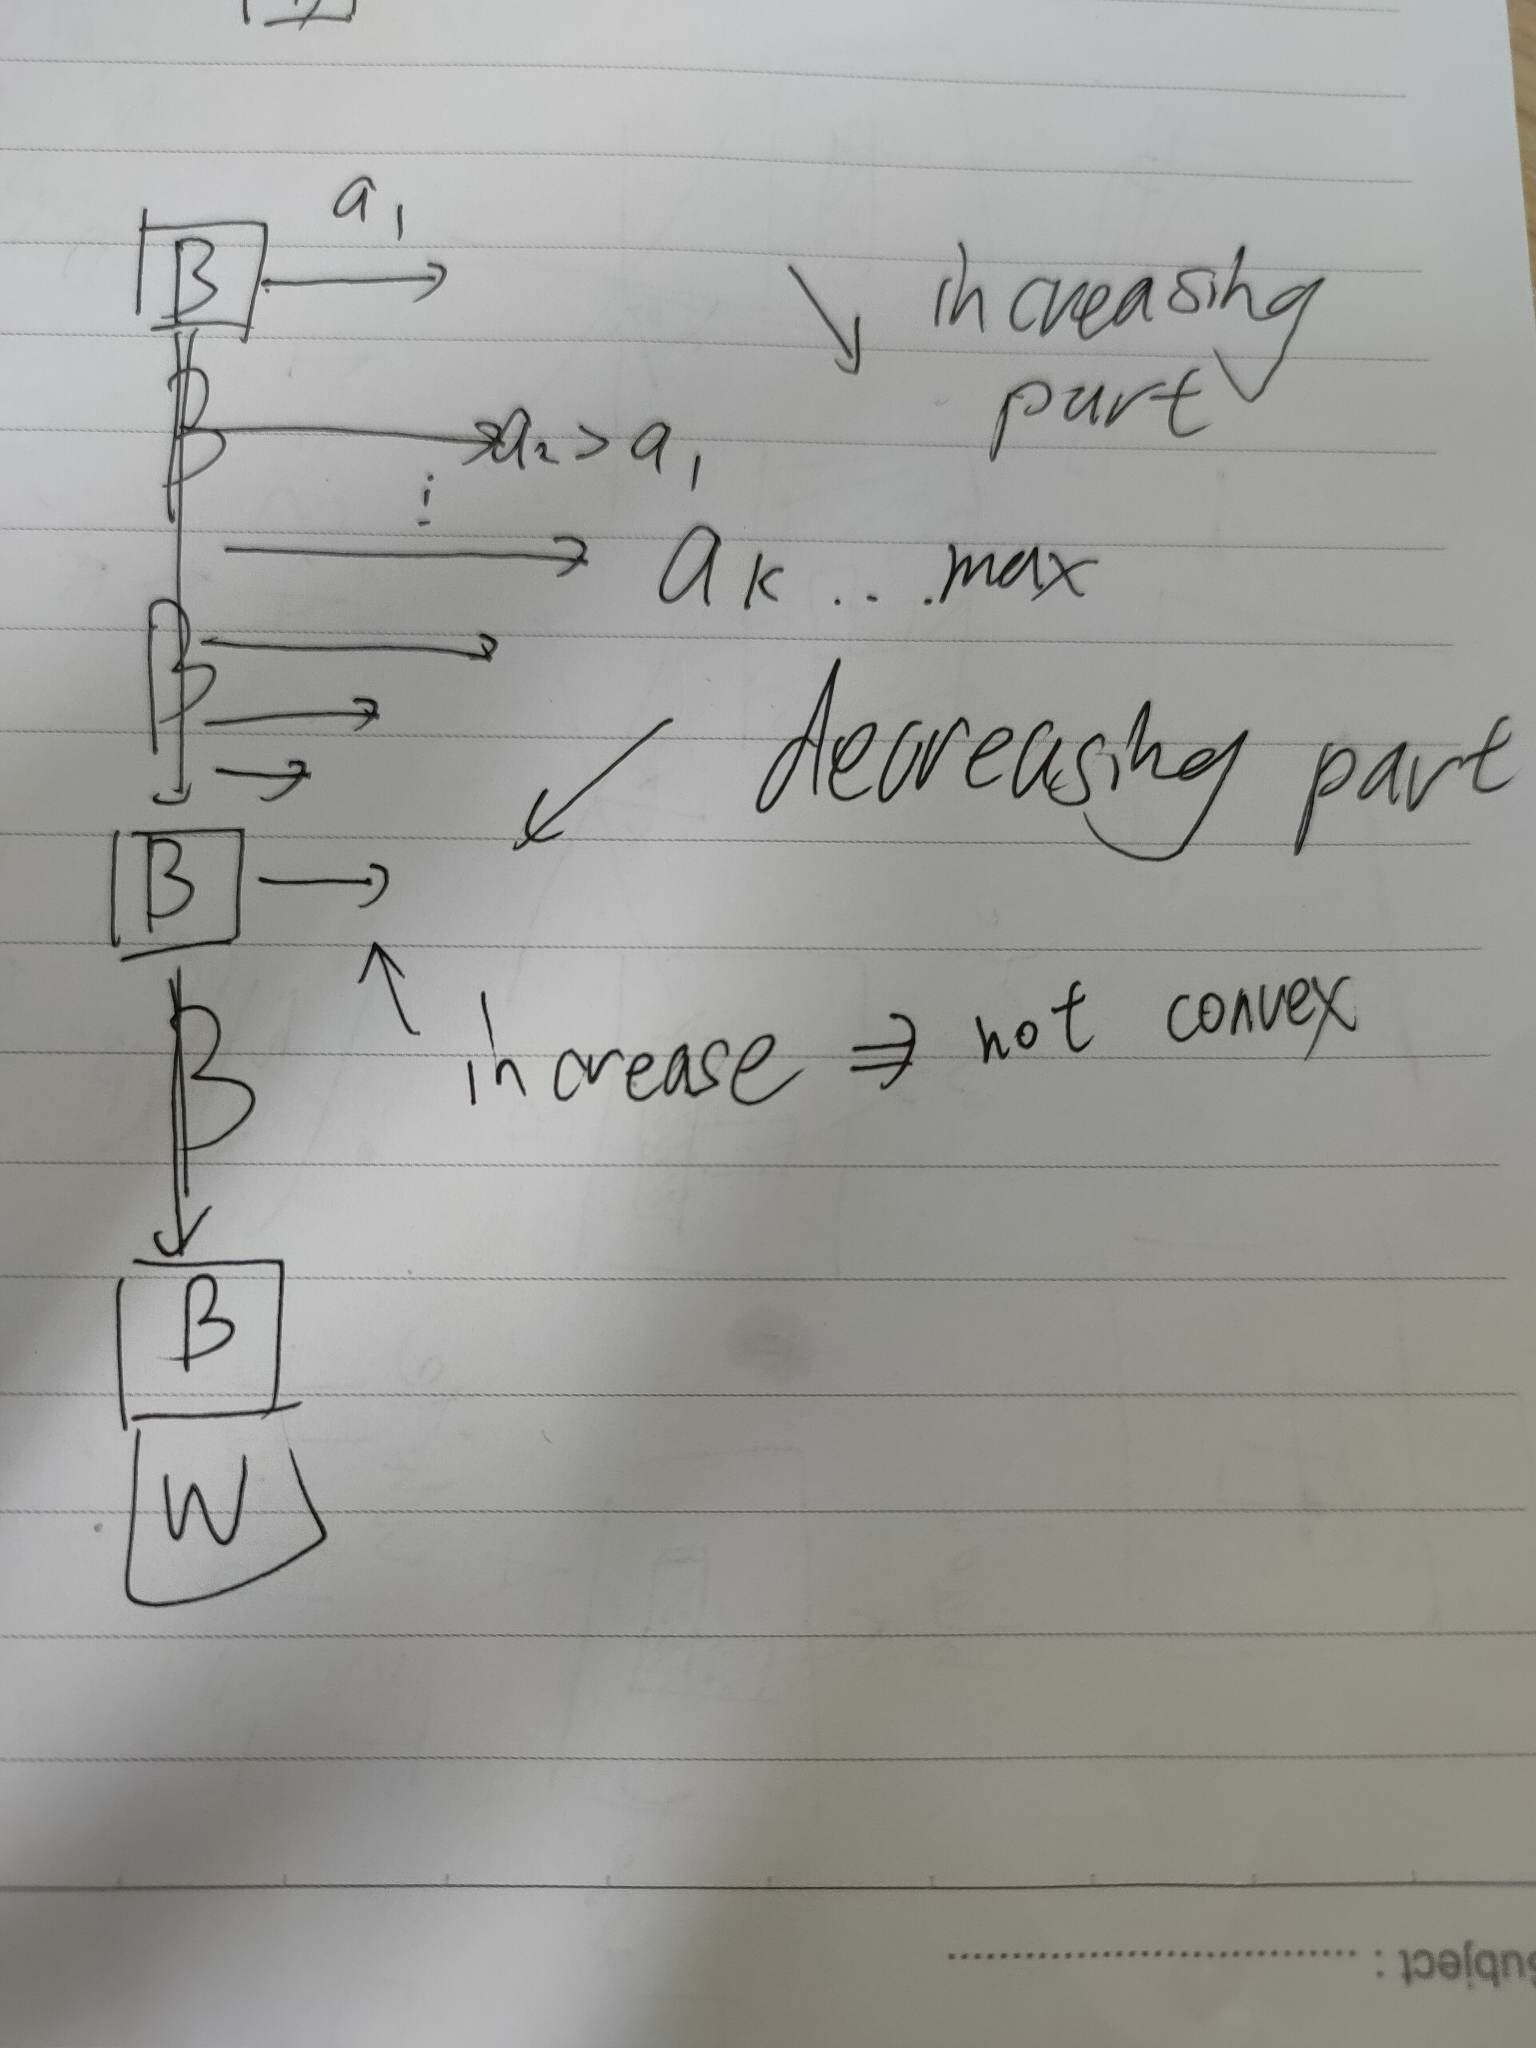 a₁
B
increasing
part
B
a₂ > a₁
⋮
a_K ... max
B
decreasing part
B
increase ⇒ not convex
B
B
W
Subject :